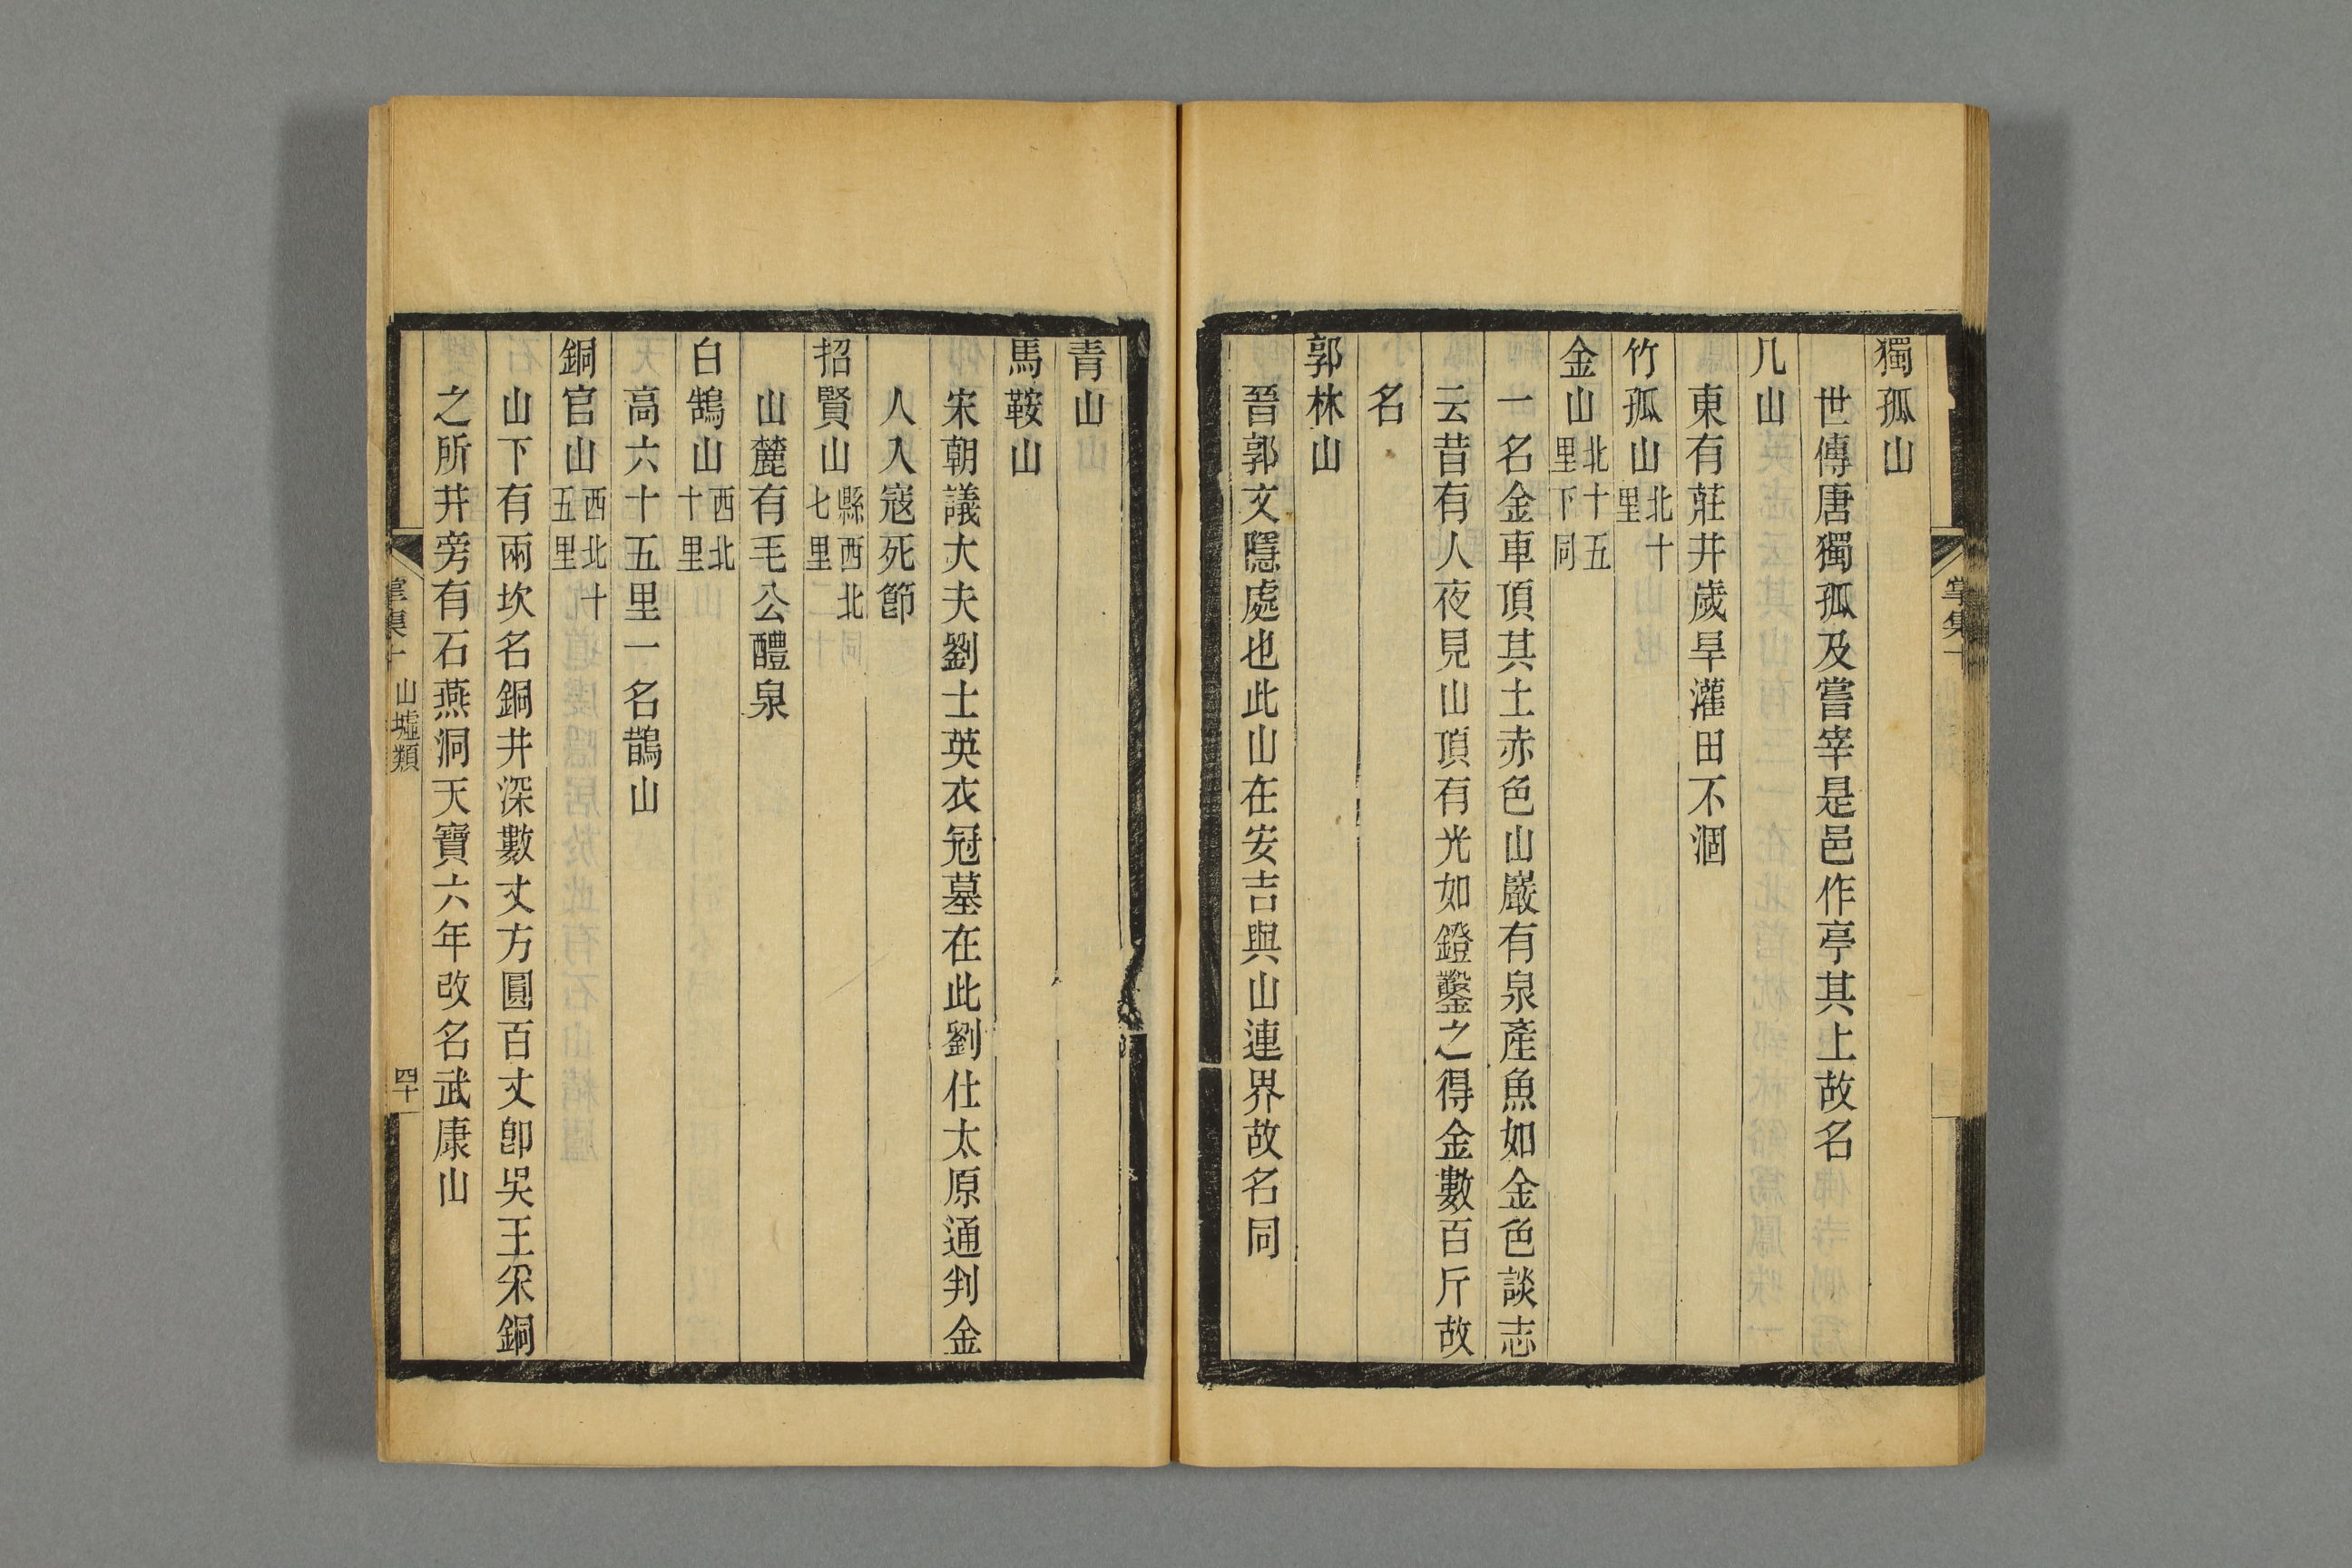 獨孤山
世傳唐獨孤及嘗宰是邑作亭其上故名
几山
東有莊井歲旱灌田不涸
竹孤山北十里
金山北十五里下同
一名金車頂其土赤色山巖有泉產魚如金色談志
云昔有人夜見山頂有光如鐙鑿之得金數百斤故
名
郭林山
晉郭文隱處也此山在安吉與山連界故名同
青山
馬鞍山
宋朝議大夫劉士英衣冠墓在此劉仕太原通判金
人入寇死節
招賢山縣西北七里
山麓有毛公醴泉
白鵠山西北十里
高六十五里一名鵲山
銅官山西北十五里
山下有兩坎名銅井深數丈方圓百丈卽吳王采銅
之所井旁有石燕洞天寶六年改名武康山
掌集十 山墟類 四十